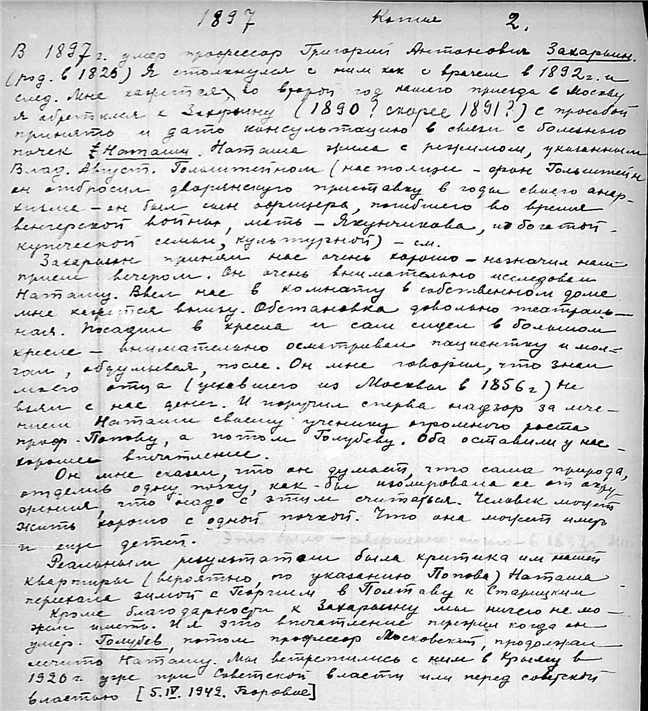 1897 Копия 2.
В 1897 г. умер профессор Григорий Антонович Захарьин.
(род. в 1828) Я столкнулся с ним как с врачем в 1892 г. и
след. Мне кажется, во второй год нашего приезда в Москву
я обратился к Захарьину (1890? скорее 1891?) с просьбой
принять и дать консультацию в связи с болезнью
почек Наташи. Наташа жила с режимом, указанным
Влад. Август. Гольштейном (настоящее - фон Гольштейн
он отбросил дворянскую приставку в годы своего анар-
хизма - он был сын офицера, погибшего во время
венгерской войны, мать - Якунчикова, из богатой
купеческой семьи, культурной) - см.
Захарьин принял нас очень хорошо - назначил нам
прием вечером. Он очень внимательно исследовал
Наташу. Ввел нас в комнату в собственном доме
мне кажется внизу. Обстановка довольно театраль-
ная. Посадил в кресла и сам сидел в большом
кресле - внимательно осматривал пациентку и мол-
чал, обдумывая, после. Он мне говорил, что знал
моего отца (уехавшего из Москвы в 1856 г) Не
взял с нас денег. И поручил сперва надзор за лече-
нием Наташи своему ученику огромного роста
проф. Попову, а потом Голубеву. Оба оставили у нас
хорошее впечатление.
Он мне сказал, что он думает, что сама природа,
отделив одну почку, как бы изолировала ее от окру-
жения, что надо с этим считаться. Человек может
жить хорошо с одной почкой. Что она может иметь
и еще детей. Это было - совершенно - в 1892 г.
Реальным результатом была критика им нашей
квартиры (вероятно, по указанию Попова) Наташа
переехала зимой с Георгием в Полтаву к Старицким
Кроме благодарности к Захарьину мы ничего не мо-
жем иметь. И я это впечатление пережил когда он
умер. Голубев, потом профессор Московский, продолжал
лечить Наташу. Мы встретились с ним в Крыму в
1920 г уже при Советской власти или перед советской
властью [5.IV.1942. Боровое]